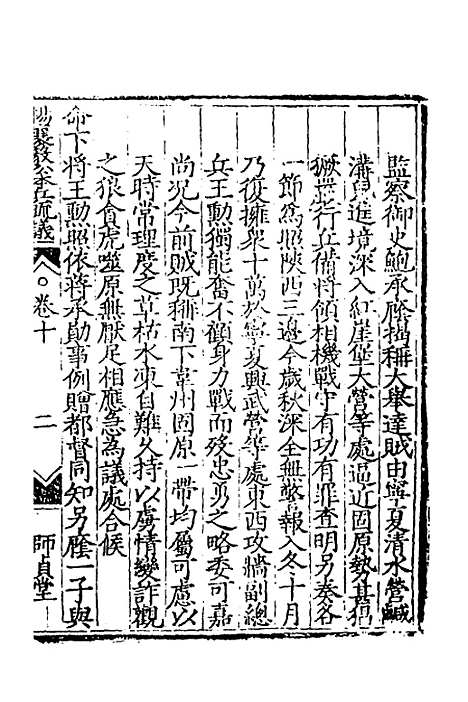 監察御史鮑承廕揭稱大舉達賊由寧夏清水營鹹
溝兒進境深入紅崖堡大營等處逼近固原勢甚猖
獗並行兵備將領相機戰守有功有罪查明另奏各
一節為照陝西三邊今歲秋深全無警報入冬十月
乃復擁衆十萬於寧夏興武營等處東西攻牆副總
兵王勳獨能奮不顧身力戰而歿忠勇之略委可嘉
尚況今前賊既稱南下韋州固原一帶均屬可慮以
天時常理度之草枯水凍自難久持以虜情變詐觀
之狼貪虎噬原無厭足相應急為議處合候
命下將王勳照依蔣承勛事例贈都督同知另廕一子與
楊襄毅公本兵疏議 卷十 二 師貞堂